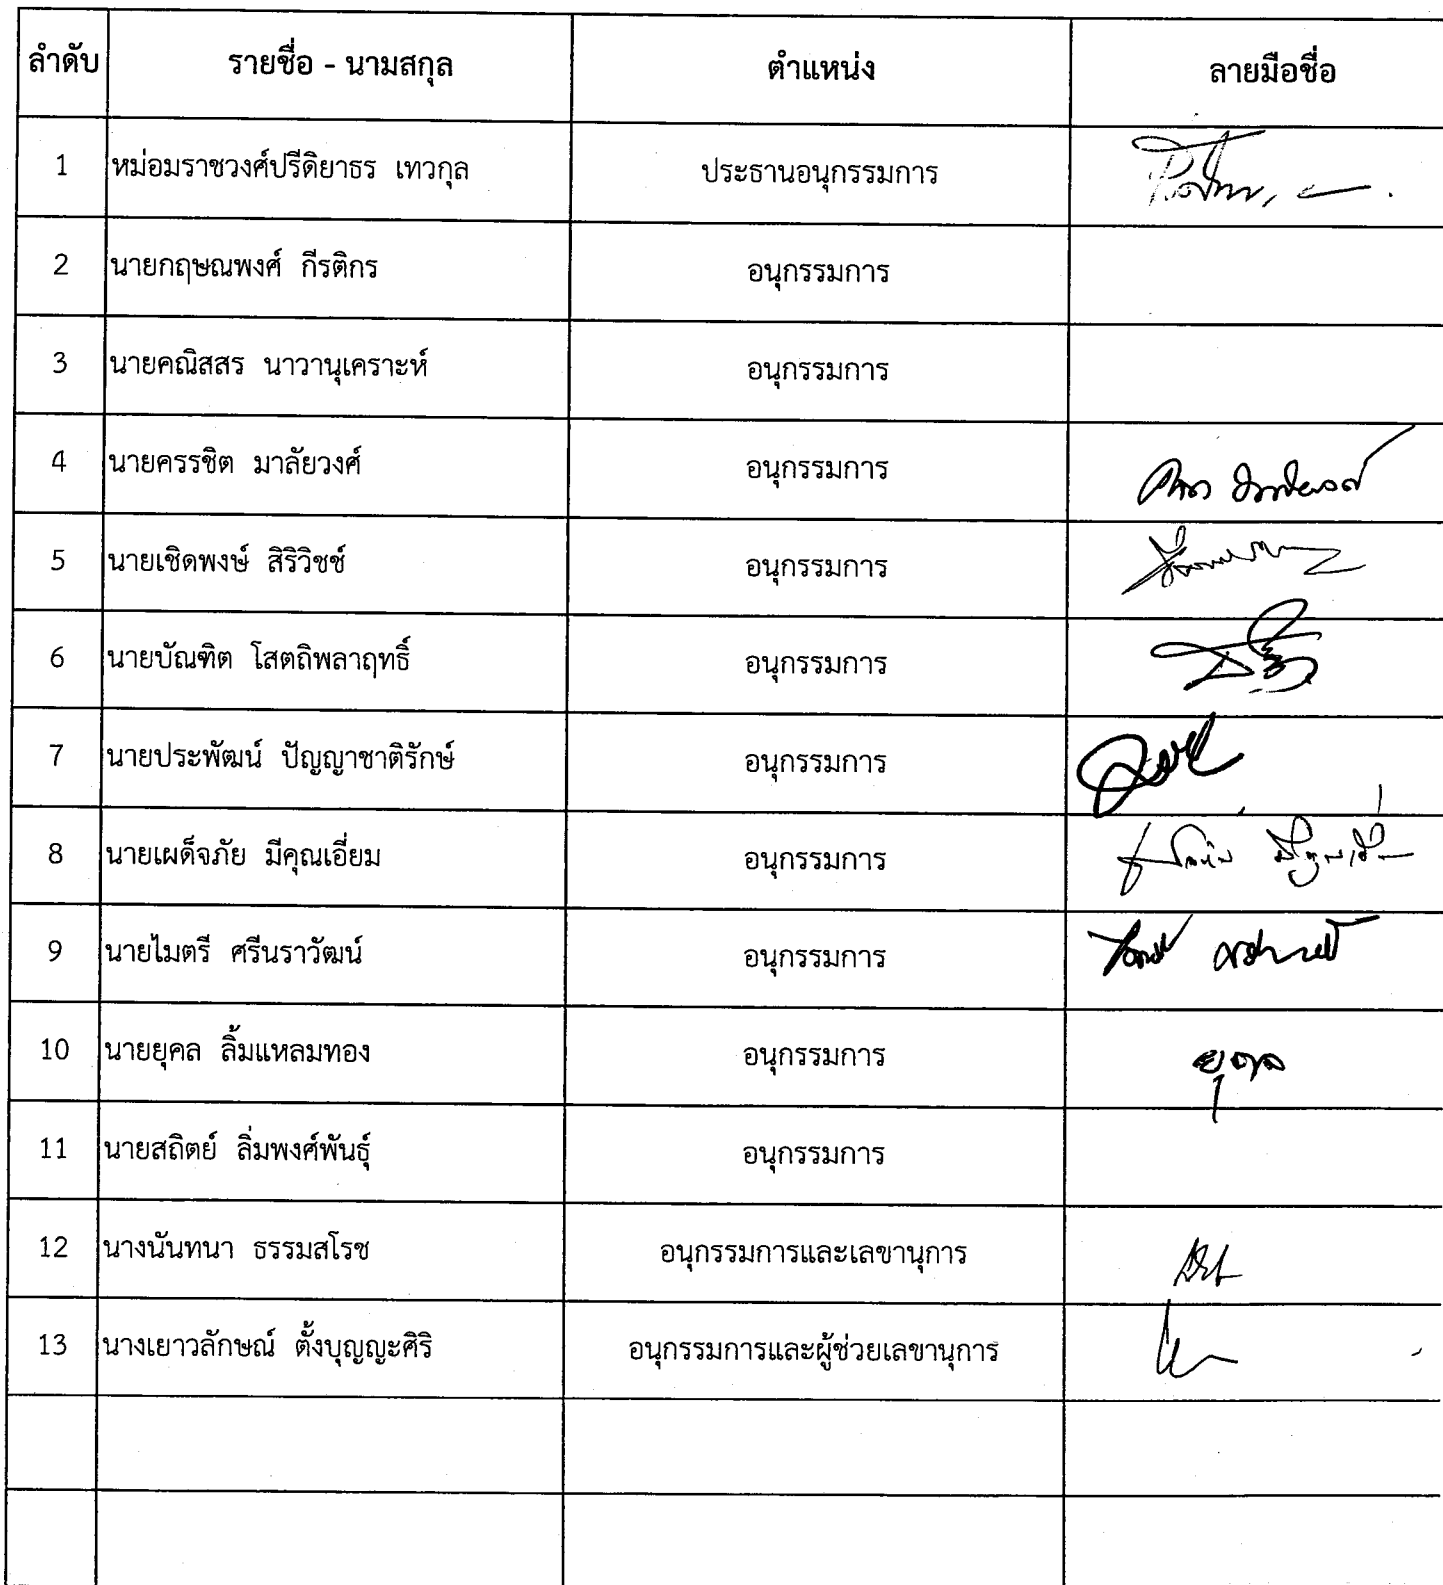 ลำดับ รายชื่อ - นามสกุล ตำแหน่ง ลายมือชื่อ
1 หม่อมราชวงศ์ปรีดิยาธร เทวกุล ประธานอนุกรรมการ
2 นายกฤษณพงศ์ กีรติกร อนุกรรมการ
3 นายคณิสสร นาวานุเคราะห์ อนุกรรมการ
4 นายครรชิต มาลัยวงศ์ อนุกรรมการ
5 นายเชิดพงษ์ สิริวิชช์ อนุกรรมการ
6 นายบัณฑิต โสตถิพลาฤทธิ์ อนุกรรมการ
7 นายประพัฒน์ ปัญญาชาติรักษ์ อนุกรรมการ
8 นายเผด็จภัย มีคุณเอี่ยม อนุกรรมการ
9 นายไมตรี ศรีนราวัฒน์ อนุกรรมการ
10 นายยุคล ลิ้มแหลมทอง อนุกรรมการ ยุคล
11 นายสถิตย์ ลิ่มพงศ์พันธุ์ อนุกรรมการ
12 นางนันทนา ธรรมสโรช อนุกรรมการและเลขานุการ
13 นางเยาวลักษณ์ ตั้งบุญญะศิริ อนุกรรมการและผู้ช่วยเลขานุการ